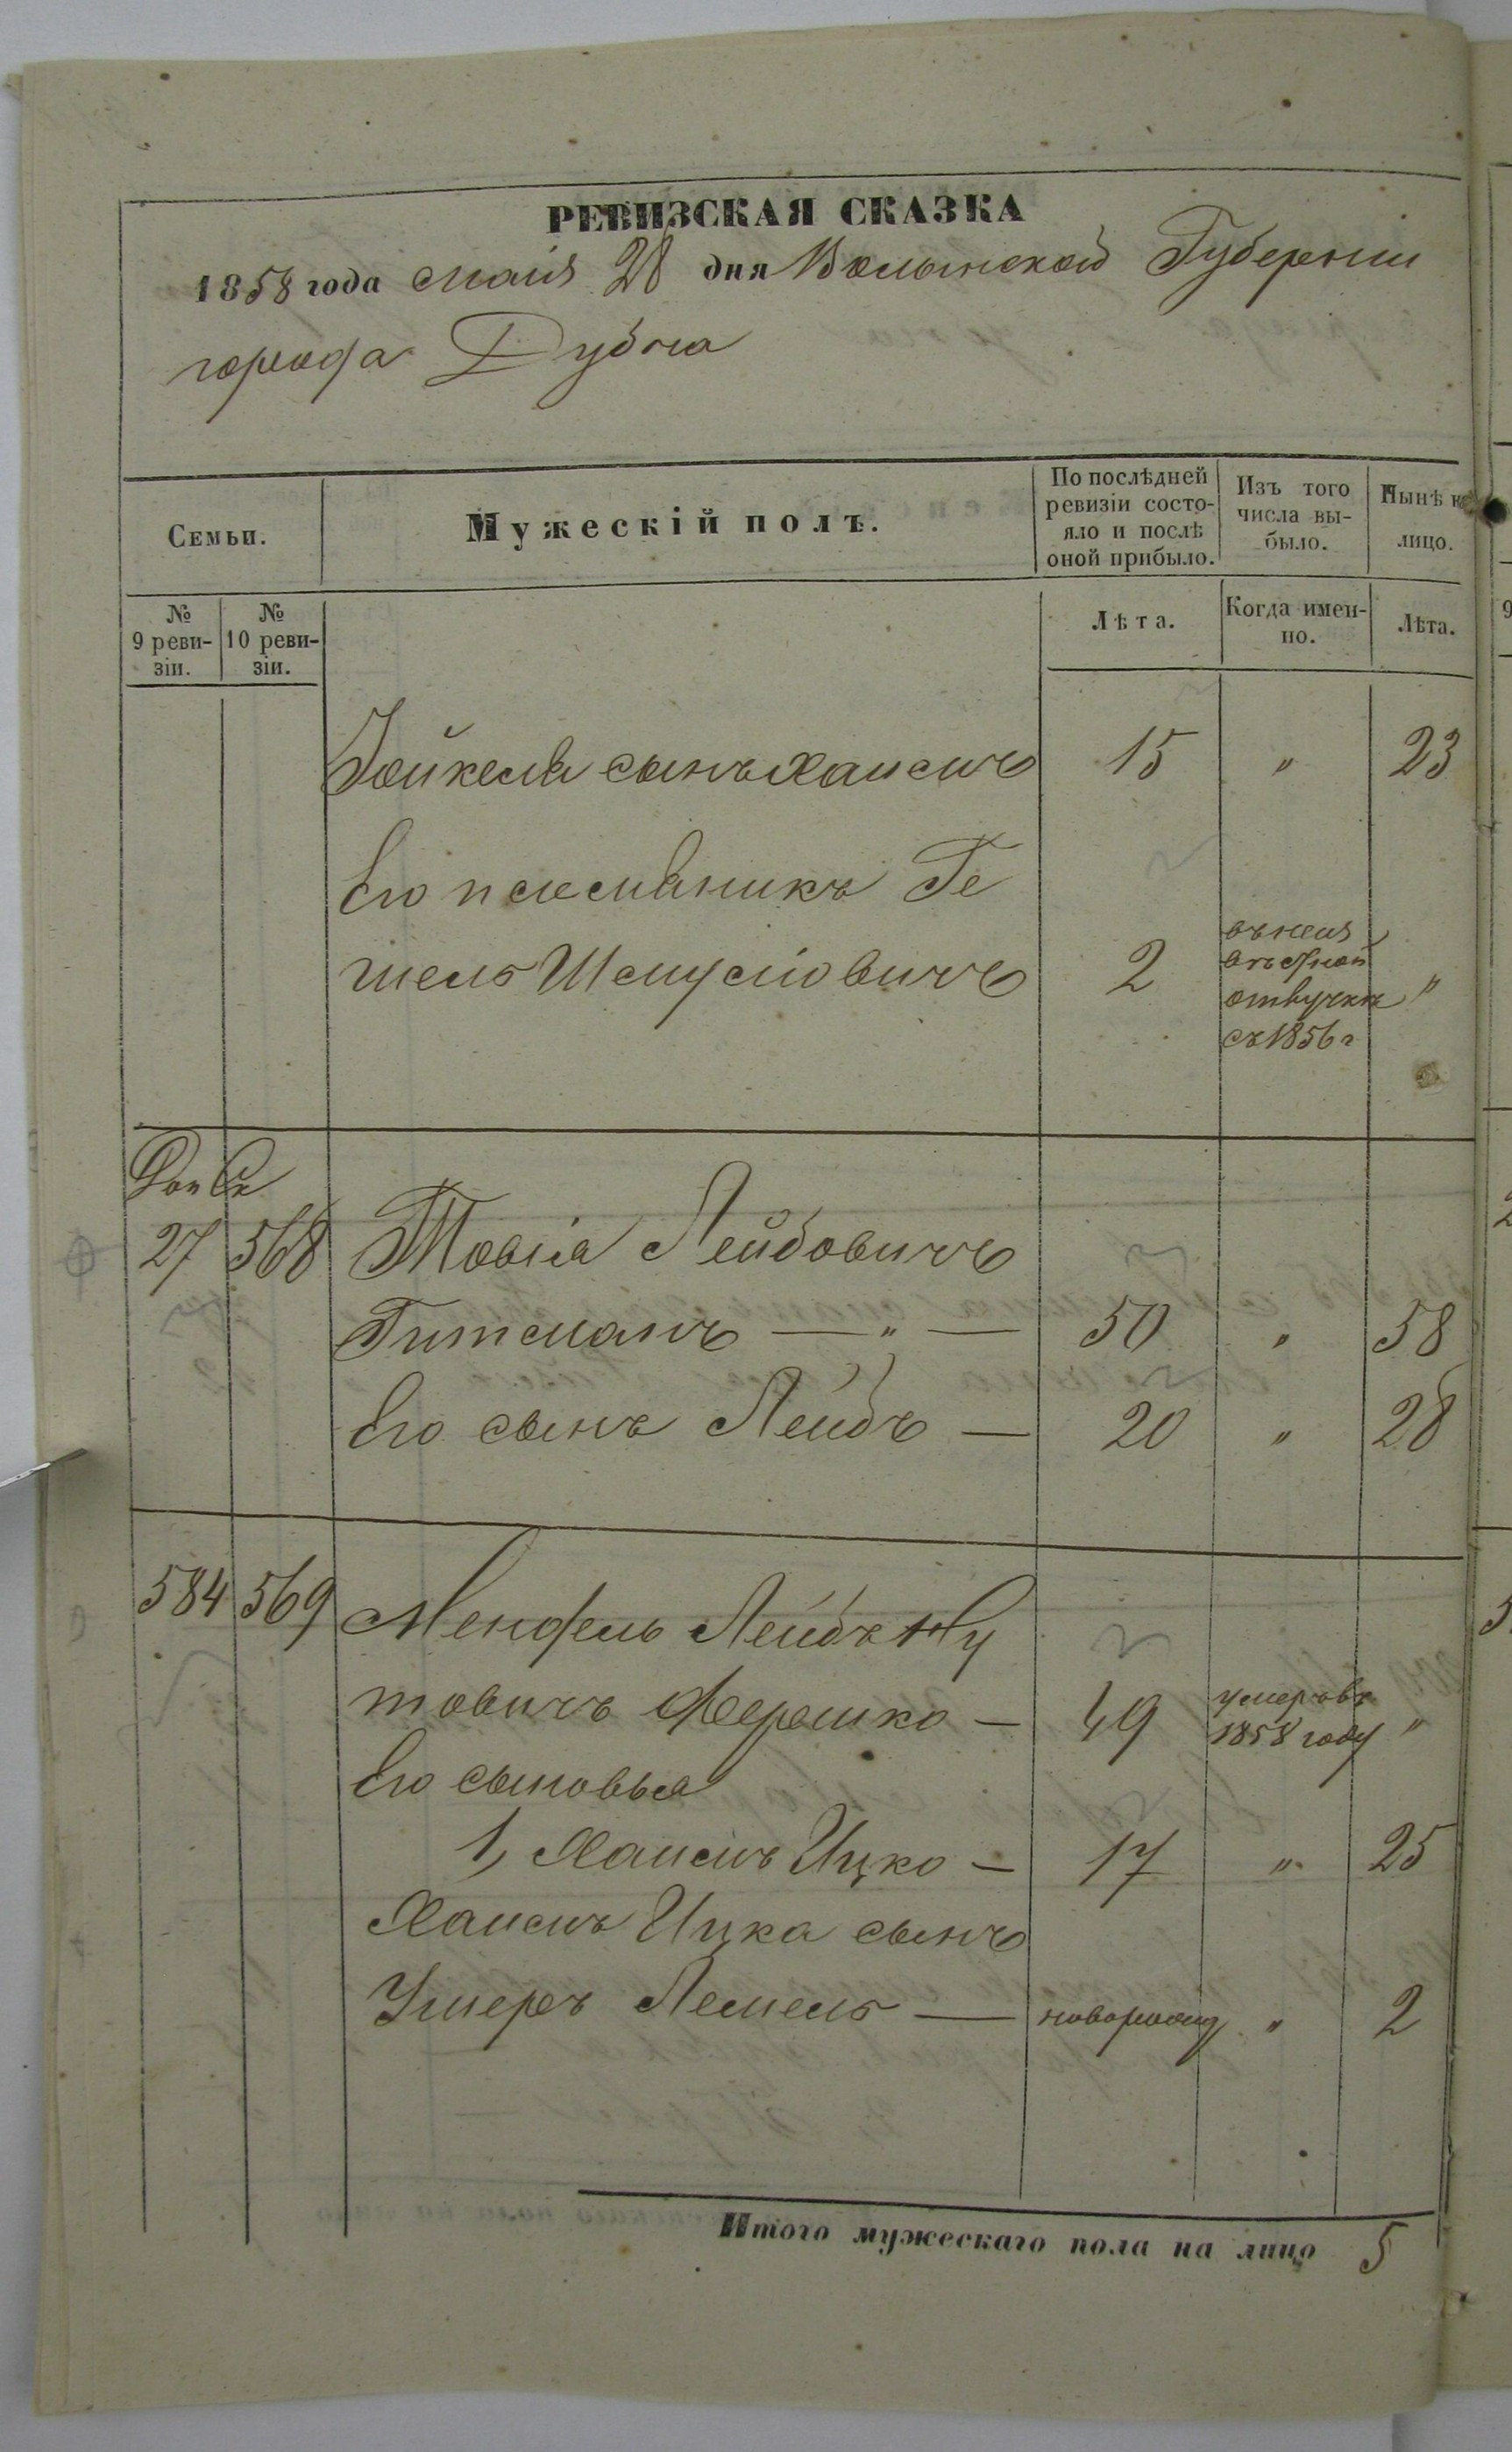 РЕВИЗСКАЯ СКАЗКА
1858 года маія 28 дня Волынской Губерніи
города Дубна
Семьи.
Мужескій полъ.
По послѣдней ревизіи состо-
яло и послѣ оной прибыло.
Изъ того числа вы-
было.
Нынѣ на лицо.
№ 9 реви-
зіи.
№ 10 реви-
зіи.
Лѣта.
Когда имен-
но.
Лѣта.
Іойкеля сынъ Хаимъ 15 " 23
Его племяникъ Ге
шель Шмуліовичъ 2 "
отлучкѣ
съ 1856 г
Доп Ск
27 568 Товія Лейбовичъ
Гитманъ — " — 50 " 58
Его сынъ Лейбъ — 20 " 28
584 569 Мендель Лейбъ Ну
товичъ Ферешко — 49 умеръ въ 1858 году "
Его сыновья
1, Хаимъ Ицко — 17 " 25
Хаимъ Ицка сынъ
Ушеръ Лемель — новорожд " 2
Итого мужескаго пола на лицо 5